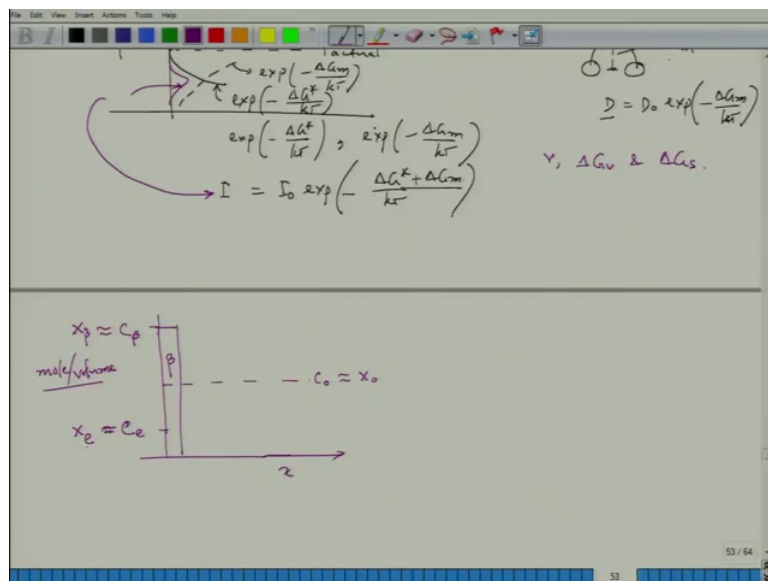 File Edit View Insert Actions Tools Help
B I
actual
exp(-ΔGm/kT)
exp(-ΔG*/kT)
exp(-ΔG*/kT), exp(-ΔGm/kT)
I = I₀ exp(-(ΔG* + ΔGm)/kT)
D = D₀ exp(-ΔGm/kT)
γ, ΔGv & ΔGs.
Xβ ≈ Cβ
β
mole/volume
C₀ ≈ X₀
Xe ≈ Ce
x
53 / 64
53